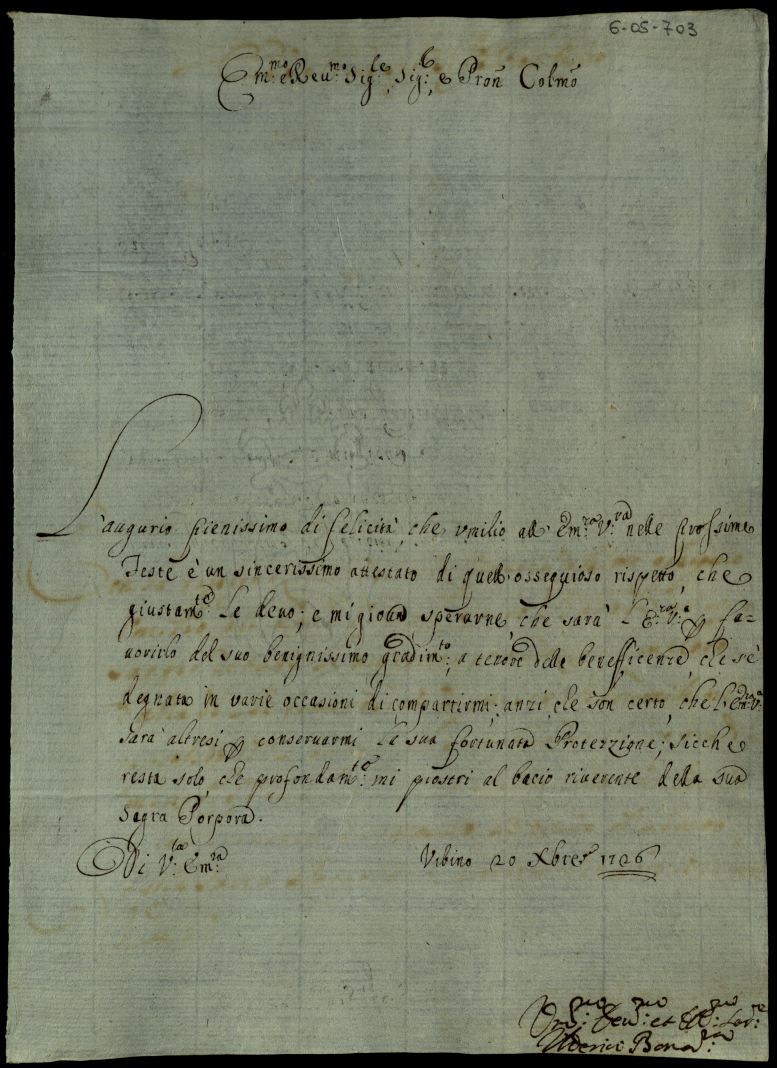 6-05-703
Em:mo e Reu:mo Sig:re, Sig:r e Pron Colmo
L'augurio pienissimo di felicità, che vmilio all Em:za V:ra nelle prossime
Feste è un sincerissimo attestato di quell'ossequioso rispetto, che
giustam:te Le deuo; e mi gioua sperarne, che sarà l'E:za V:a p fa-
uorirlo del suo benignissimo gradim:to, a tenore delle benefficenze, che s'è
degnata in varie occasioni di compartirmi; anzi, che son certo, che l'Em:za V:a
sarà altresì p conseruarmi la sua fortunata Protezzione; sicche
resta solo, che profondam:te mi prostri al bacio riuerente della sua
Sagra Porpora.
Di V:ra Em:za
Vrbino 20 Xbre 1726
Vmo: Deu:mo et :mo Ser:re